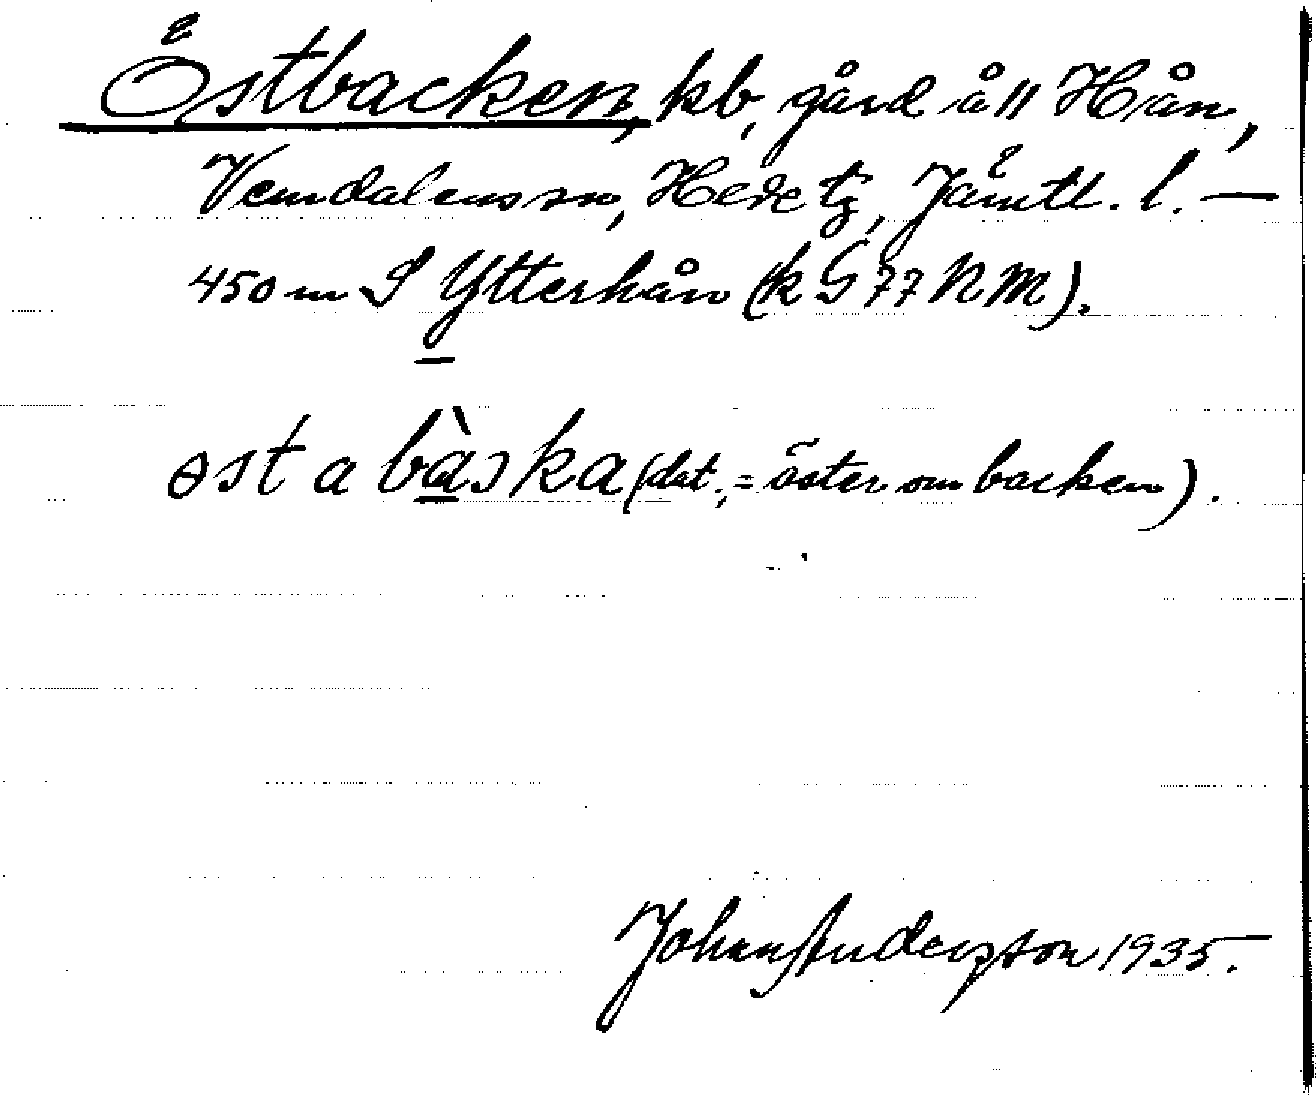 Östbacken, kb, gård å 11 Hån,
Vemdalens sn, Hede tg, Jämtl. l. —
450 m S Ytterhån (k G 77 N M).
ɵst a bàska (dat., = öster om backen).
Johan Anderzson 1935.